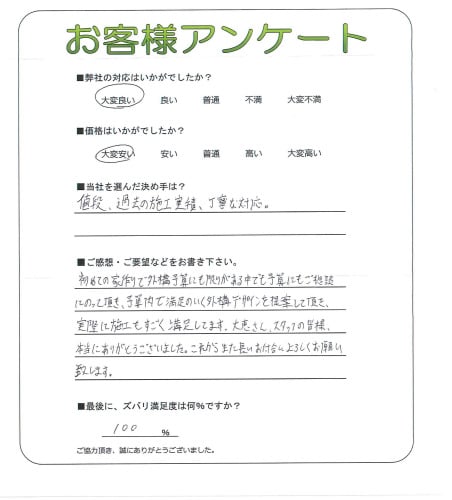 お客様アンケート
■弊社の対応はいかがでしたか？
大変良い 良い 普通 不満 大変不満
■価格はいかがでしたか？
大変安い 安い 普通 高い 大変高い
■当社を選んだ決め手は？
値段、過去の施工実績、丁寧な対応。
■ご感想・ご要望などをお書き下さい。
初めての家作りで外構予算にも限りがある中でも予算にもご相談
にのって頂き、予算内で満足のいく外構デザインを提案して頂き、
実際に施工もすごく満足してます。大恵さん、スタッフの皆様、
本当にありがとうございました。これからまた長いお付合いよろしくお願い
致します。
■最後に、ズバリ満足度は何％ですか？
100 ％
ご協力頂き、誠にありがとうございました。